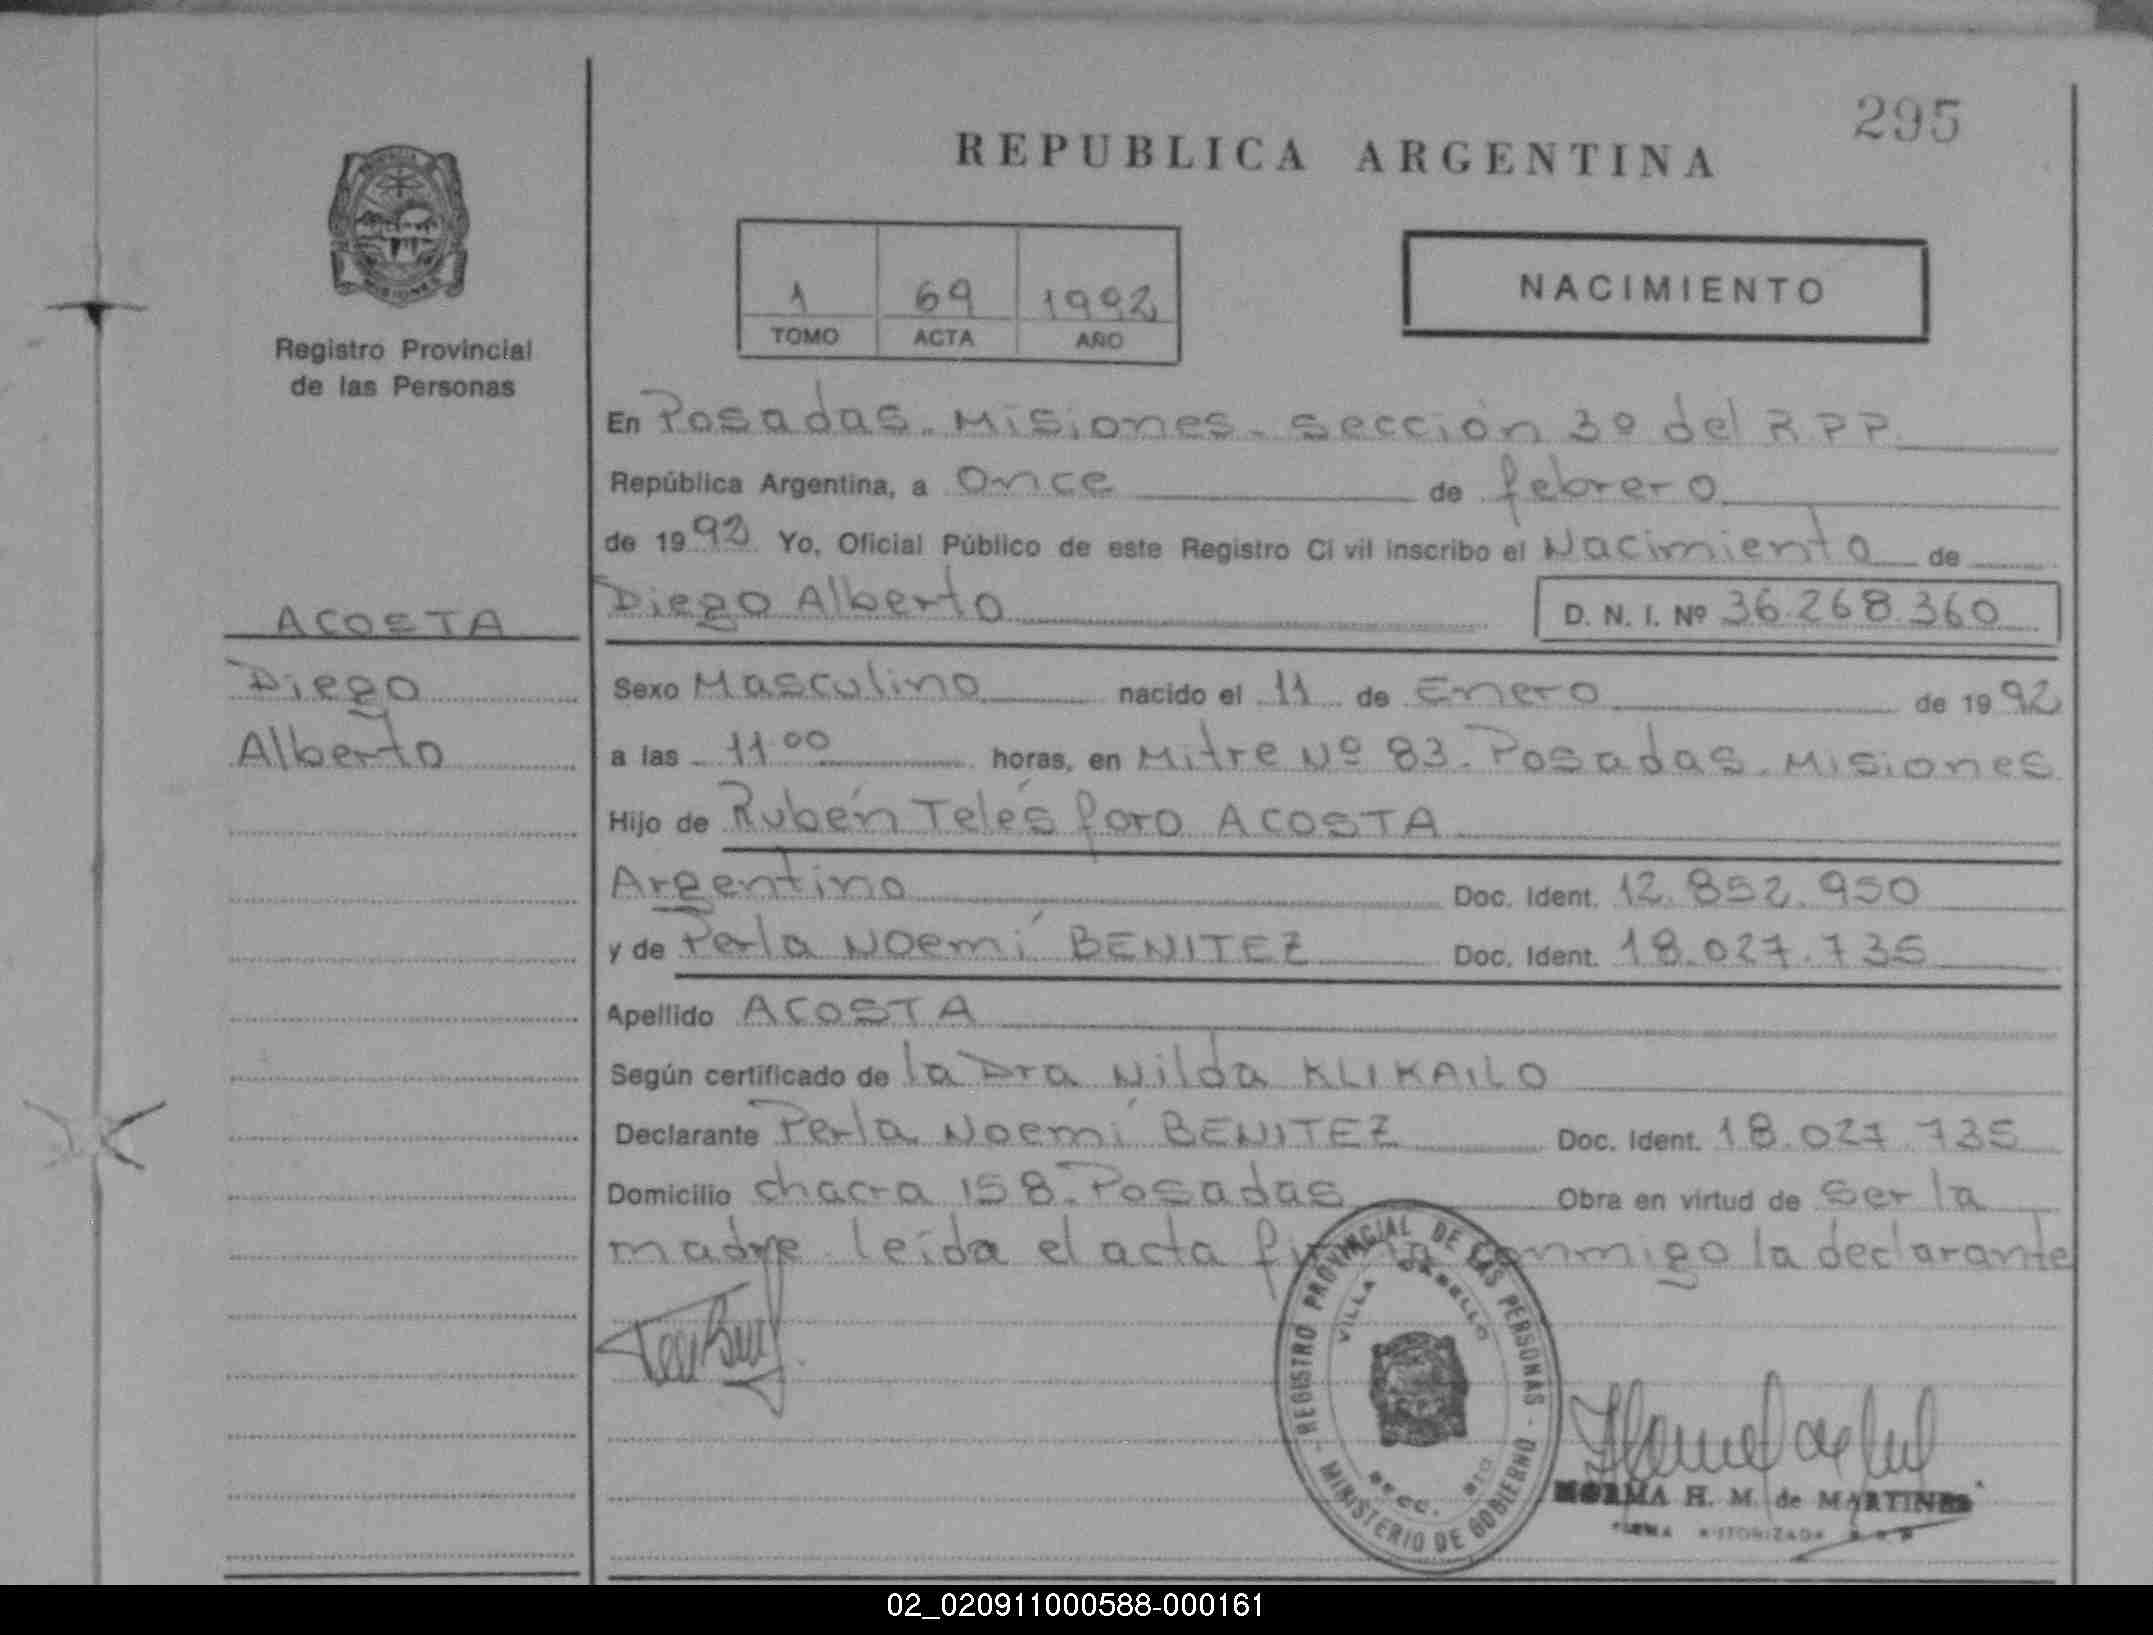 295
REPUBLICA ARGENTINA
1 69 1992
TOMO ACTA AÑO
NACIMIENTO
Registro Provincial
de las Personas
En Posadas. Misiones. Sección 3º del R.P.P.
República Argentina, a once de febrero
de 1992 Yo, Oficial Público de este Registro Ci vil inscribo el Nacimiento de
Diego Alberto D. N. I. Nº 36.268.360
ACOSTA
Diego
Alberto
Sexo Masculino nacido el 11 de Enero de 1992
a las 11 00 horas, en Mitre Nº 83. Posadas. Misiones
Hijo de Rubén Telésforo ACOSTA
Argentino Doc. Ident. 12.852.950
y de Perla Noemí BENITEZ Doc. Ident. 18.027.735
Apellido ACOSTA
Según certificado de la Dra Nilda KLIKAILO
Declarante Perla Noemí BENITEZ Doc. Ident. 18.027.735
Domicilio chacra 158. Posadas Obra en virtud de ser la
madre. leída el acta firma conmigo la declarante
REGISTRO PROVINCIAL DE LAS PERSONAS - MINISTERIO DE GOBIERNO -
VILLA CABELLO
SECC.
NORMA H. M. de MARTINES
FIRMA AUTORIZADA
02_020911000588-000161